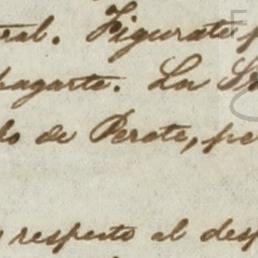 ral. Figurate
pagarte. La
lo de Perote, pe
respecto al desp